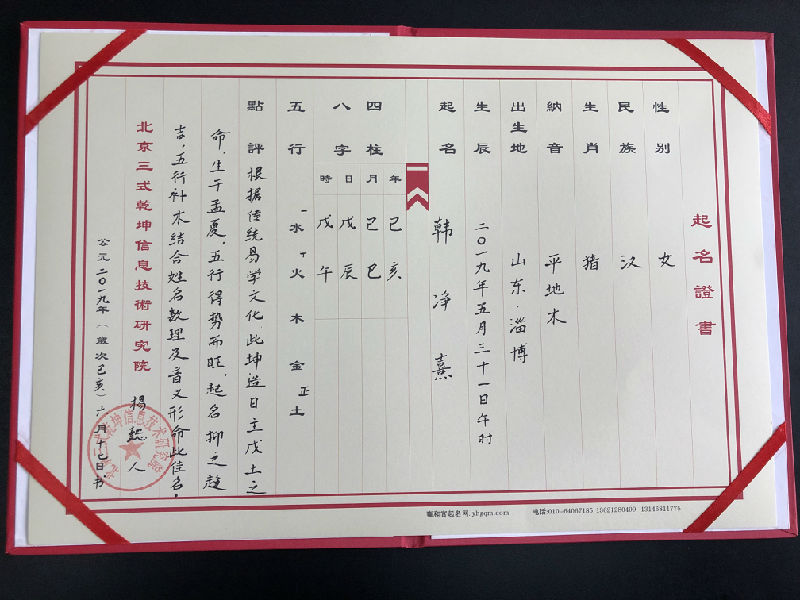 起名證書
性别 女
民族 汉
生肖 猪
納音 平地木
出生地 山东·淄博
生辰 二〇一九年五月三十一日午时
起名 韩净熹
四柱八字
年 己亥
月 己巳
日 戊辰
時 戊午
五行 水 火 木 金 土
點評 根据传统易学文化此坤造日主戊土之
命，生于孟夏，五行得势而旺，起名抑之
吉，五行补木结合姓名数理及音义形命此佳名。
北京三式乾坤信息技術研究院 楊懿人
公元二〇一九年（歲次己亥）六月十七日·书
雍和宫起名网.yhgqm.com
电话:010-64067185